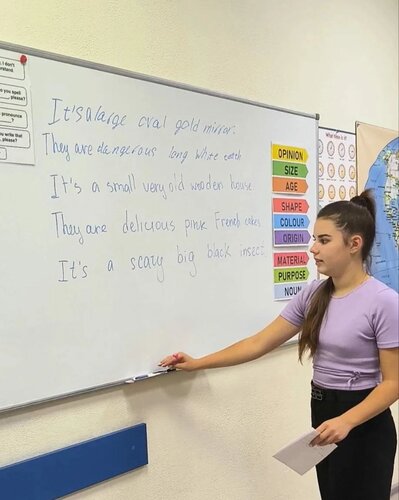 I don't
understand.
you spell
please?
pronounce
you write that
please?
It's a large oval gold mirror.
They are dangerous long white teeth
It's a small very old wooden house
They are delicious pink French cakes
It's a scary big black insect
OPINION
SIZE
AGE
SHAPE
COLOUR
ORIGIN
MATERIAL
PURPOSE
NOUN
What time is it?